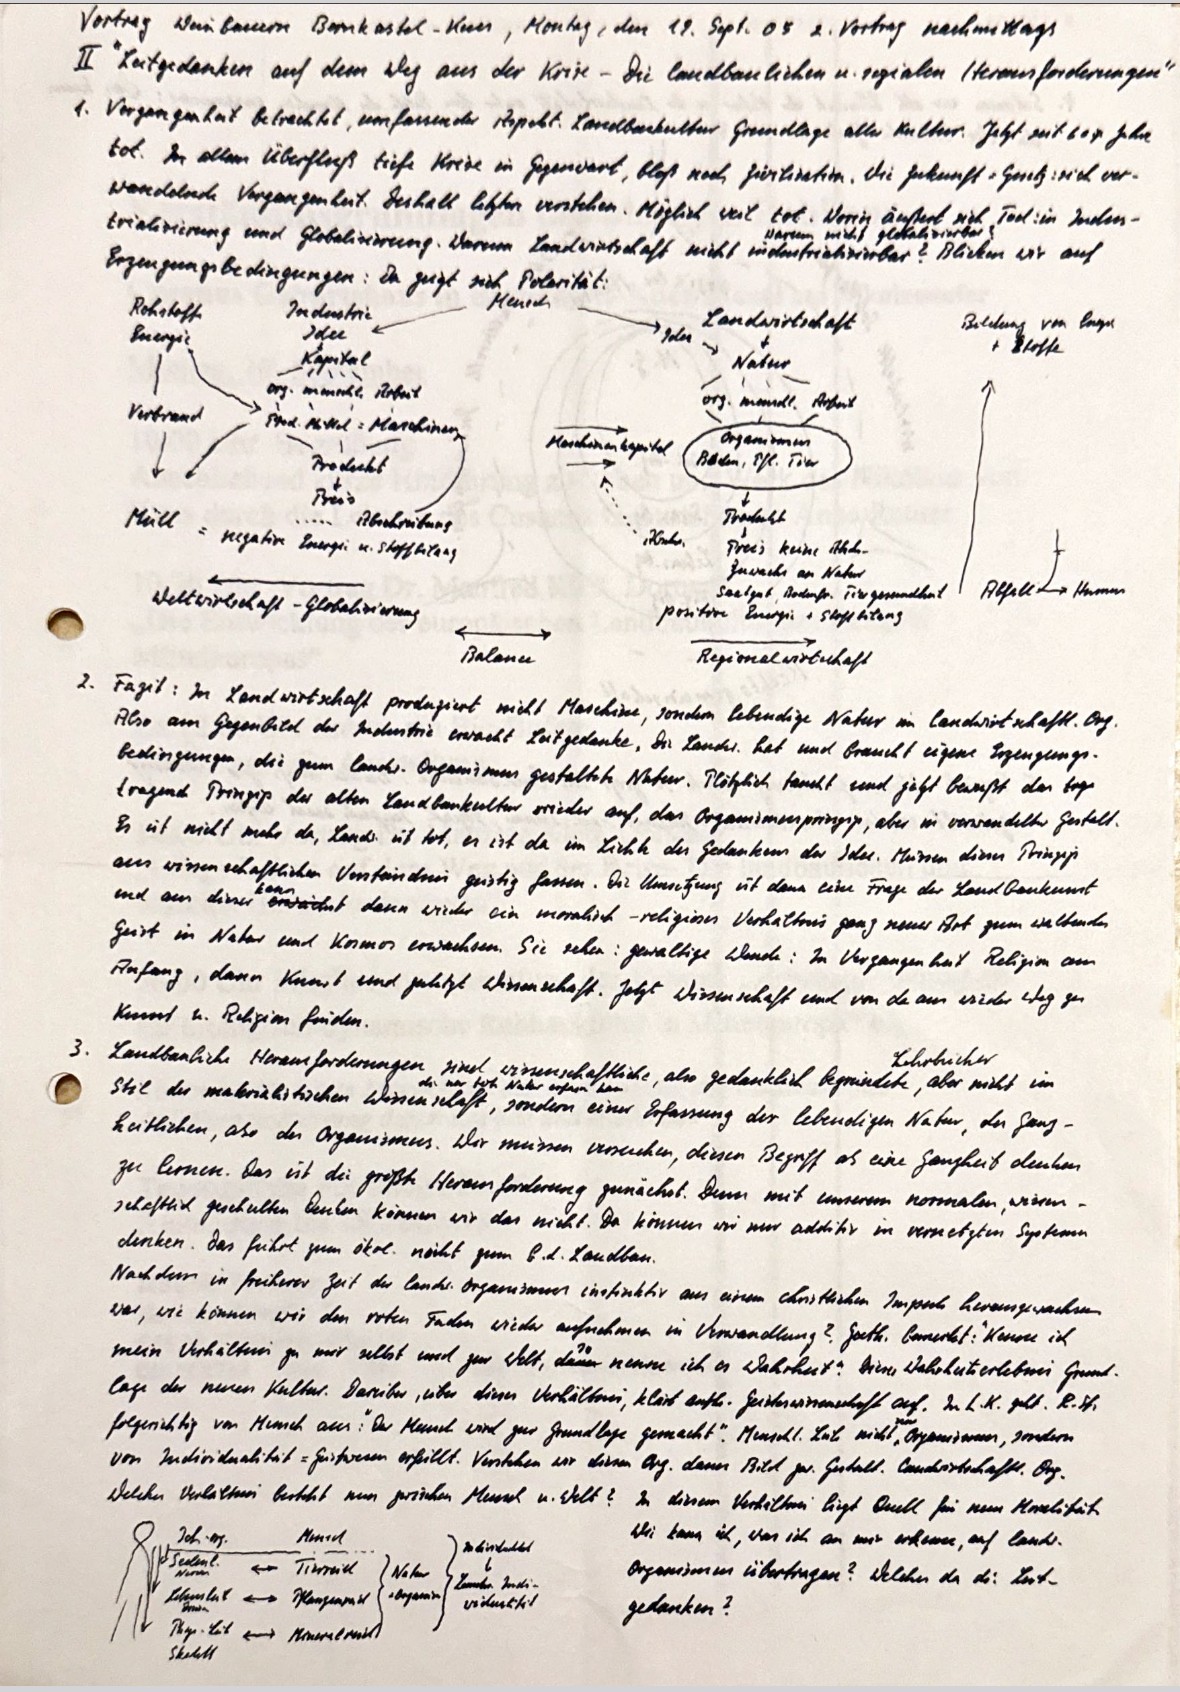 Vortrag Weinbauern Bernkastel-Kues, Montag, den 19. Sept. 05 2. Vortrag nachmittags
II "Leitgedanken auf dem Weg aus der Krise – Die landbaulichen u. sozialen Herausforderungen"
1. Vergangenheit betrachtet, umfassender Aspekt. Landbaukultur Grundlage aller Kultur. Jetzt seit Jahre
tot. In allem Überfluß tiefe Krise in Gegenwart, bloß noch Zivilisation. Die Zukunft = Gesetz: sich ver-
wandelnde Vergangenheit. Deshalb letztere verstehen. Möglich weil tot. Worin äußert sich Tod: in Indus-
trialisierung und Globalisierung. Warum Landwirtschaft nicht industrialisierbar? Blicken wir auf
warum nicht globalisierbar?
Erzeugungsbedingungen: Da zeigt sich Polarität:
Mensch
Rohstoff Industrie Landwirtschaft Bildung von Energie
Energie Idee Idee + Stoffe
Kapital Natur
org. menschl. Arbeit org. menschl. Arbeit
Verbrauch Prod. Mittel = Maschinen
Maschinenkapital Organismus
Boden, Pfl. Tier
Produkt
Preis Produkt
Müll = Abschreibung
negative Energie u. Stoffbilanz
Preis keine Abschr.
Zuwachs an Natur
Saatgut, Bodenfr. Tiergesundheit Abfall → Humus
positive Energie + Stoffbilanz
Weltwirtschaft – Globalisierung
Balance Regionalwirtschaft
2. Fazit: In Landwirtschaft produziert nicht Maschine, sondern lebendige Natur im landwirtschaftl. Org.
Also am Gegenbild der Industrie erwacht Leitgedanke, Die Landw. hat und braucht eigene Erzeugungs-
bedingungen, die zum landw. Organismus gestaltete Natur. Plötzlich taucht und jetzt bewußt das
tragend Prinzip der alten Landbaukultur wieder auf, das Organismusprinzip, aber in verwandelter Gestalt.
Es ist nicht mehr da, Landw. ist tot, es ist da im Lichte des Gedankens der Idee. Müssen dieses Prinzip
aus wissenschaftlichen Verständnis geistig fassen. Die Umsetzung ist dann eine Frage der Landbaukunst
und aus dieser kann dann wieder ein moralisch-religiöses Verhältnis ganz neuer Art zum waltenden
Geist in Natur und Kosmos erwachsen. Sie sehen: gewaltige Wende: In Vergangenheit Religion am
Anfang, dann Kunst und zuletzt Wissenschaft. Jetzt Wissenschaft und von da aus wieder Weg zu
Kunst u. Religion finden.
3. Landbauliche Herausforderungen sind wissenschaftliche, also gedanklich begründete, aber nicht im
Lehrbücher
Stil der materialistischen Wissenschaft, sondern einer Erfassung der lebendigen Natur, des Ganz-
die nur tote Natur erfassen kann
heitlichen, also des Organismus. Wir müssen versuchen, diesen Begriff als eine Ganzheit denken
zu lernen. Das ist die größte Herausforderung zunächst. Denn mit unserem normalen, wissen-
schaftlich geschulten Denken können wir das nicht. Da können wir nur additiv in vernetzten Systemen
denken. Das führt zum ökol. nicht zum b.d. Landbau.
Nachdem in früherer Zeit der landw. Organismus instinktiv aus einem christlichen Impuls herausgewachsen
war, wie können wir den roten Faden wieder aufnehmen in Verwandlung? Goethe bemerkt: "Kenne ich
mein Verhältnis zu mir selbst und zur Welt, so nenne ich es Wahrheit". Dieses Wahrheitserlebnis Grund-
lage der neuen Kultur. Darüber, über dieses Verhältnis, klärt anthr. Geisteswissenschaft auf. In L.K. geht R.St.
folgerichtig vom Mensch aus: "Der Mensch wird zur Grundlage gemacht". Menschl. Leib nicht nur Organismus, sondern
von Individualität = Geistwesen erfüllt. Verstehen wir diesen Org. dann Bild zur Gestalt. landwirtschaftl. Org.
Welches Verhältnis besteht nun zwischen Mensch u. Welt? In diesem Verhältnis liegt Quell für neue Moralität.
Wie kann ich, was ich an mir erkenne, auf landw.
Organismus übertragen? Welches da die Leit-
gedanken?
Ich-Org. Mensch
Seelenl. ↔ Tierreich
Nerven
Lebensleib ↔ Pflanzenreich
Drüsen
Phys. Leib ↔ Mineralreich
Skelett
Natur
=Organism.
Individualität
↓
Landw. Indi-
vidualität